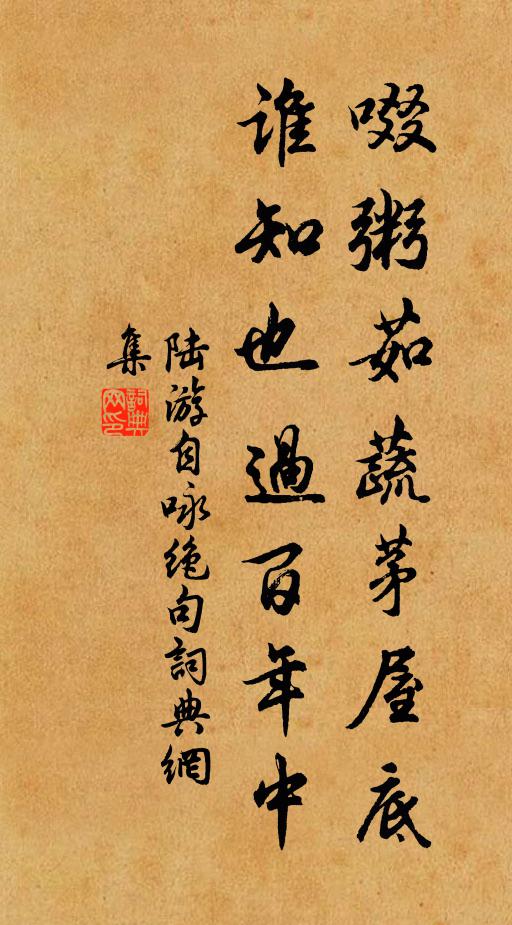 啜粥茹蔬茅屋底
誰知也過百年中
陆游自咏绝句詞典網
集
詞典
网印